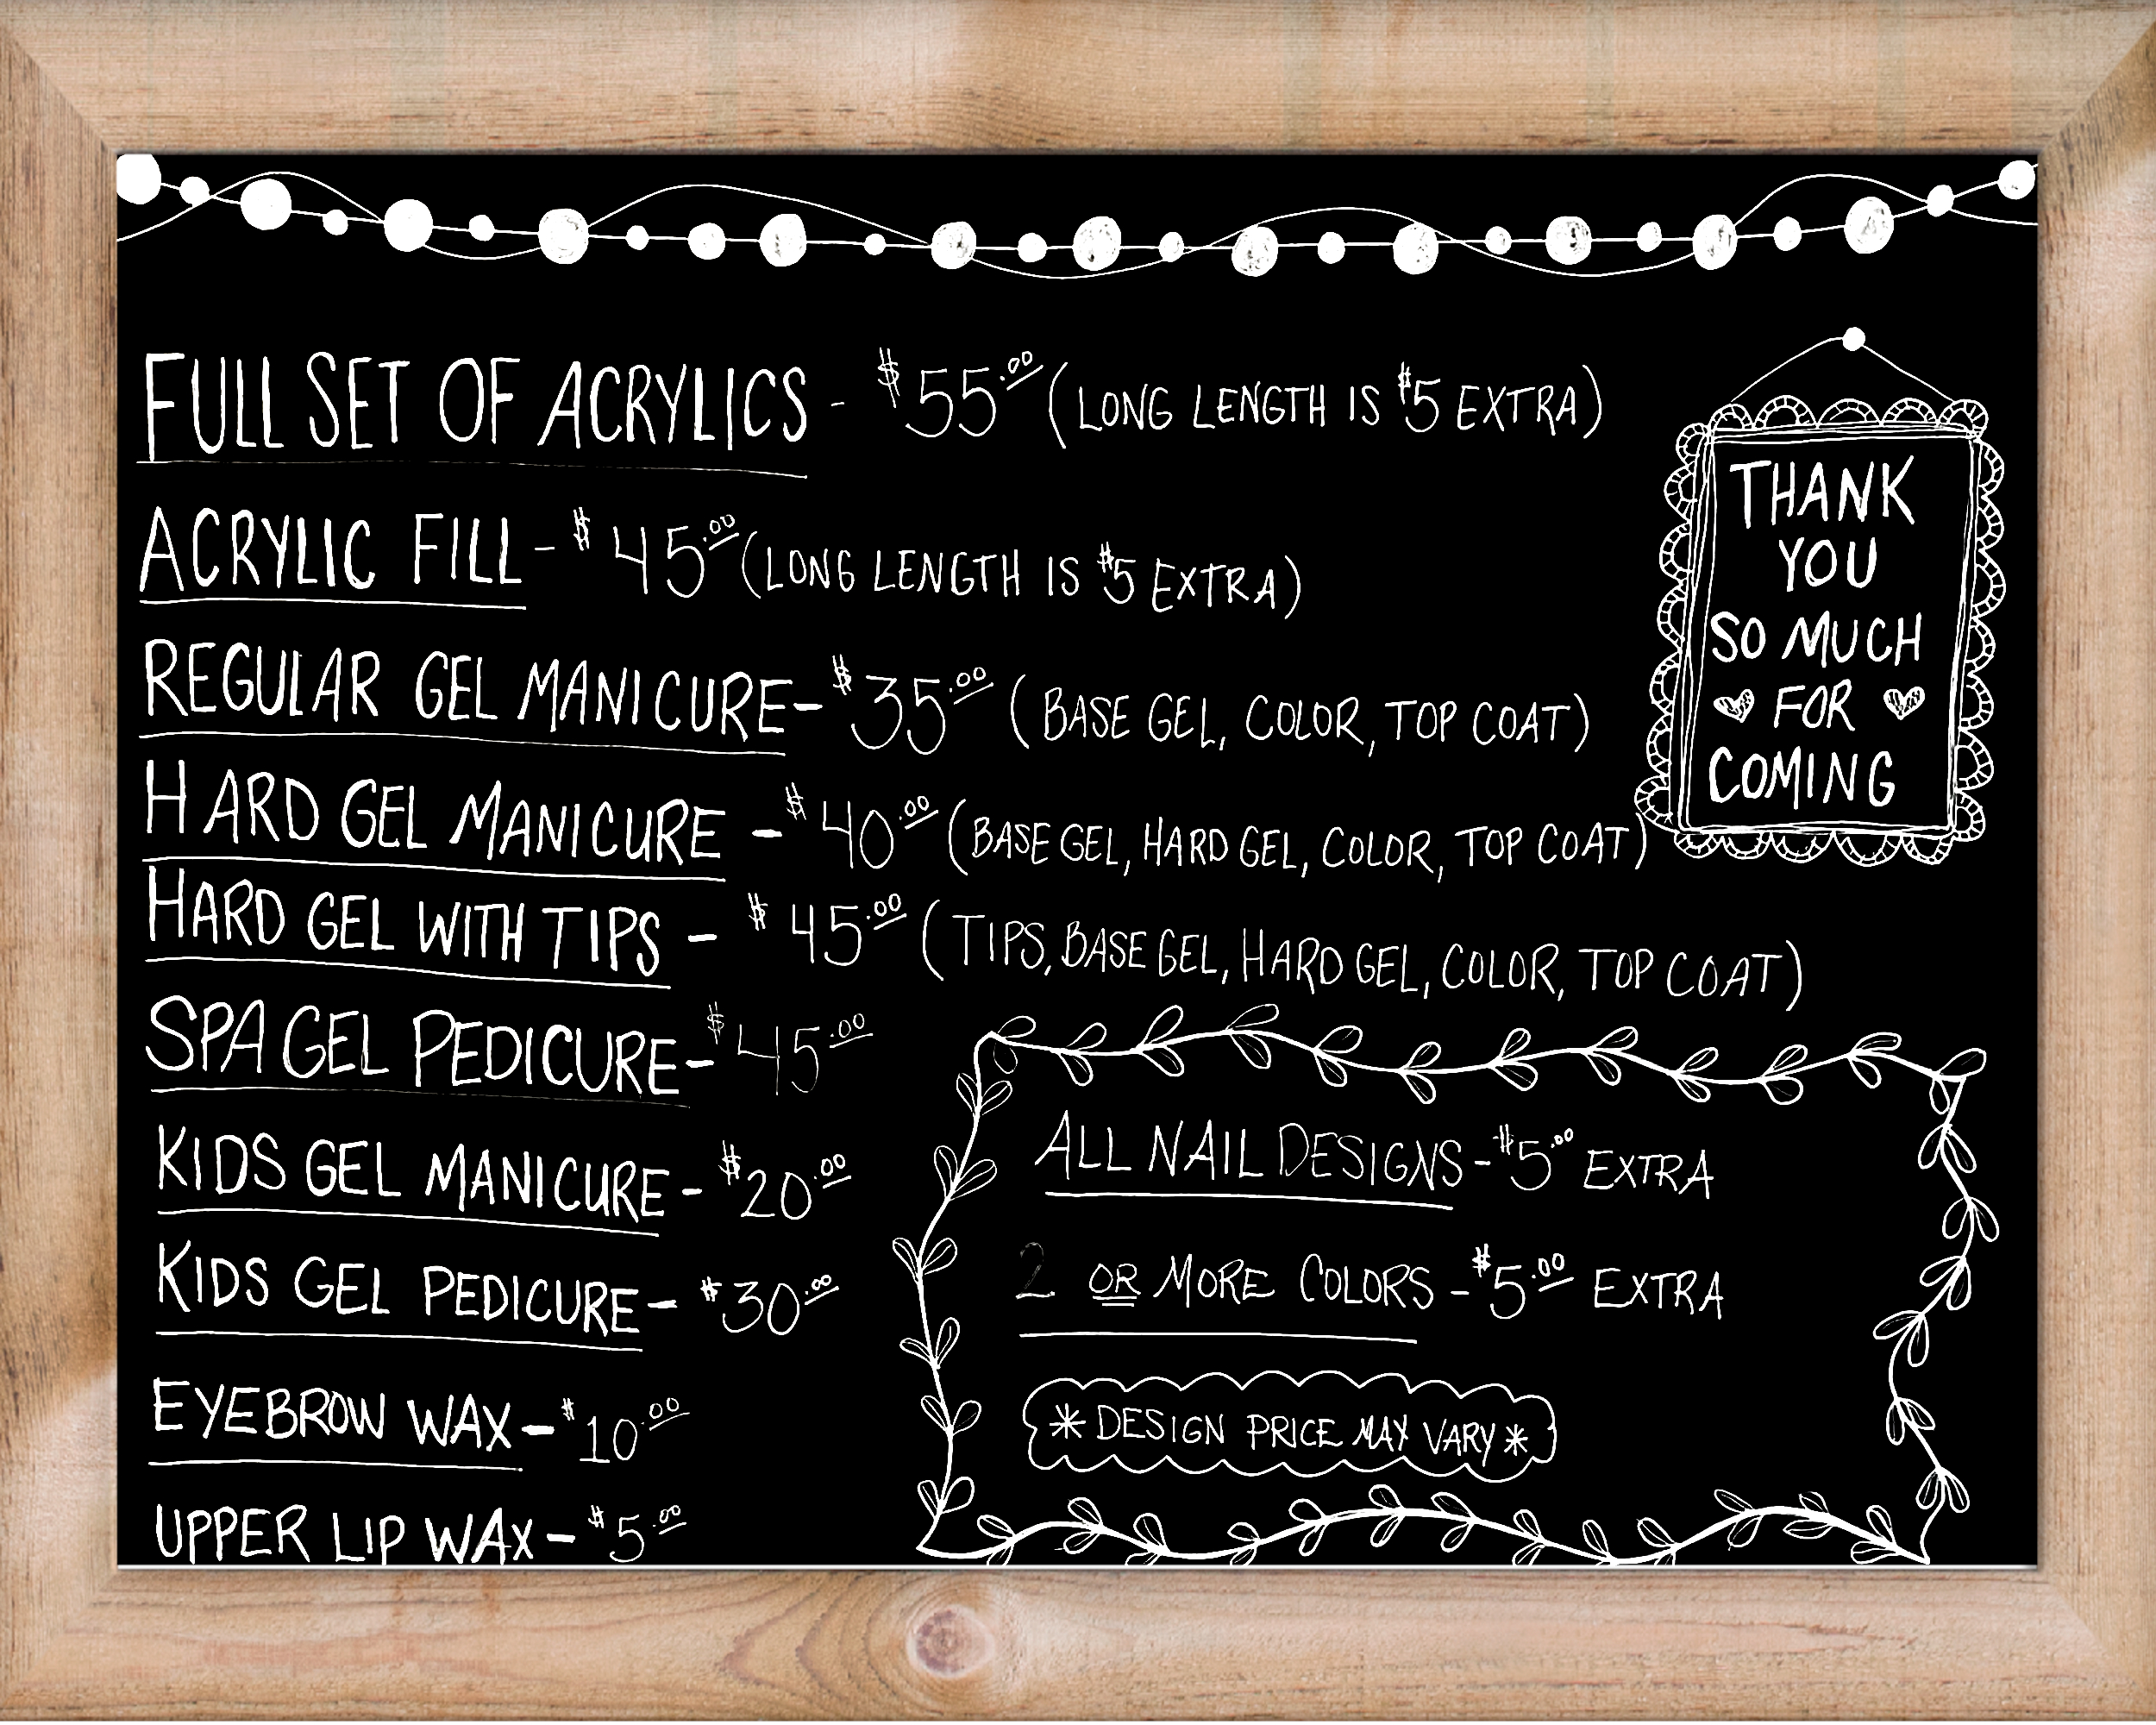 FULL SET OF ACRYLICS - $55.00 (LONG LENGTH IS $5 EXTRA)
ACRYLIC FILL - $45.00 (LONG LENGTH IS $5 EXTRA)
REGULAR GEL MANICURE - $35.00 (BASE GEL, COLOR, TOP COAT)
HARD GEL MANICURE - $40.00 (BASE GEL, HARD GEL, COLOR, TOP COAT)
HARD GEL WITH TIPS - $45.00 (TIPS, BASE GEL, HARD GEL, COLOR, TOP COAT)
SPA GEL PEDICURE - $45.00
KIDS GEL MANICURE - $20.00
KIDS GEL PEDICURE - $30.00
EYEBROW WAX - $10.00
UPPER LIP WAX - $5.00
THANK
YOU
SO MUCH
FOR
COMING
ALL NAIL DESIGNS - $5.00 EXTRA
2 OR MORE COLORS - $5.00 EXTRA
* DESIGN PRICE MAY VARY *